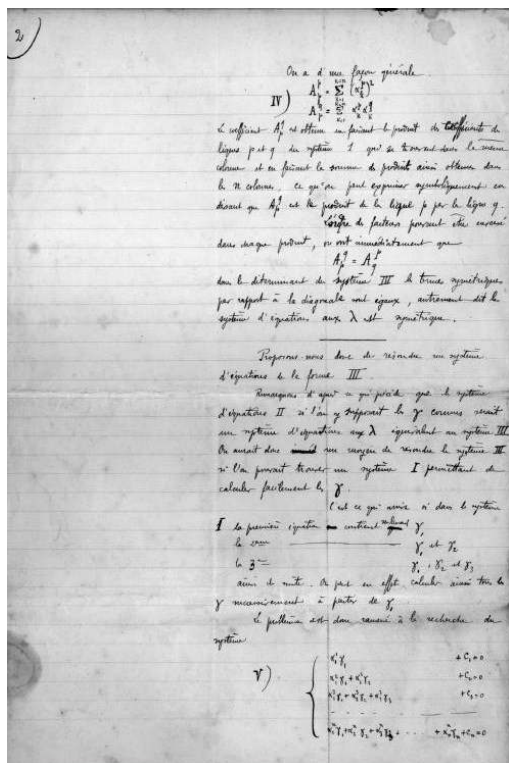 2
On a d'une façon générale
IV) A_p^p = Σ (α_k^p)²
A_p^q = Σ α_k^p α_k^q
Le coefficient A_p^q est obtenu en faisant le produit des coefficients des
lignes p et q du système I qui se trouvent dans la même
colonne et en faisant la somme des produits ainsi obtenus dans
les n colonnes, ce qu'on peut exprimer symboliquement en
disant que A_p^q est le produit de la ligne p par la ligne q.
L'ordre des facteurs pouvant être inversé
dans chaque produit, on voit immédiatement que
A_p^q = A_q^p
dans le déterminant du système III les termes symétriques
par rapport à la diagonale sont égaux, autrement dit le
système d'équations aux λ est symétrique.
Proposons-nous donc de résoudre un système
d'équations de la forme III
Remarquons d'après ce qui précède que le système
d'équations II si l'on y supposait les γ connus serait
un système d'équations aux λ équivalent au système III
On aurait donc un moyen de résoudre le système III
si l'on pouvait trouver un système I permettant de
calculer facilement les γ.
C'est ce qui arrive si dans le système
I la première équation contient seulement γ₁
la 2ème γ₁ et γ₂
la 3ème γ₁, γ₂ et γ₃
ainsi de suite. On peut en effet calculer ainsi tous les
γ successivement à partir de γ₁
Le problème est donc ramené à la recherche du
système
V) α₁¹γ₁ + C₁=0
α₁²γ₁+α₂²γ₂ + C₂=0
α₁³γ₁+α₂³γ₂+α₃³γ₃ + C₃=0
α₁ⁿγ₁+α₂ⁿγ₂+α₃ⁿγ₃+ . . . + αₙⁿγₙ+Cₙ=0